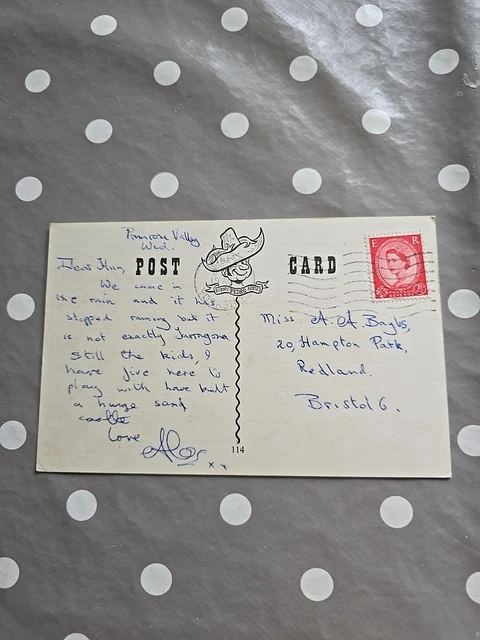 Primrose Valley
Wed.
Dear Ann,
We came in
the rain and it has
stopped raining but it
is not exactly Tarragona
still the kids, I
have five here to
play with have built
a hunge sand
castle
love
xx
POST CARD
114
E R
2½
Miss A. A. Bayls,
20, Hampton Park,
Redland.
Bristol 6.